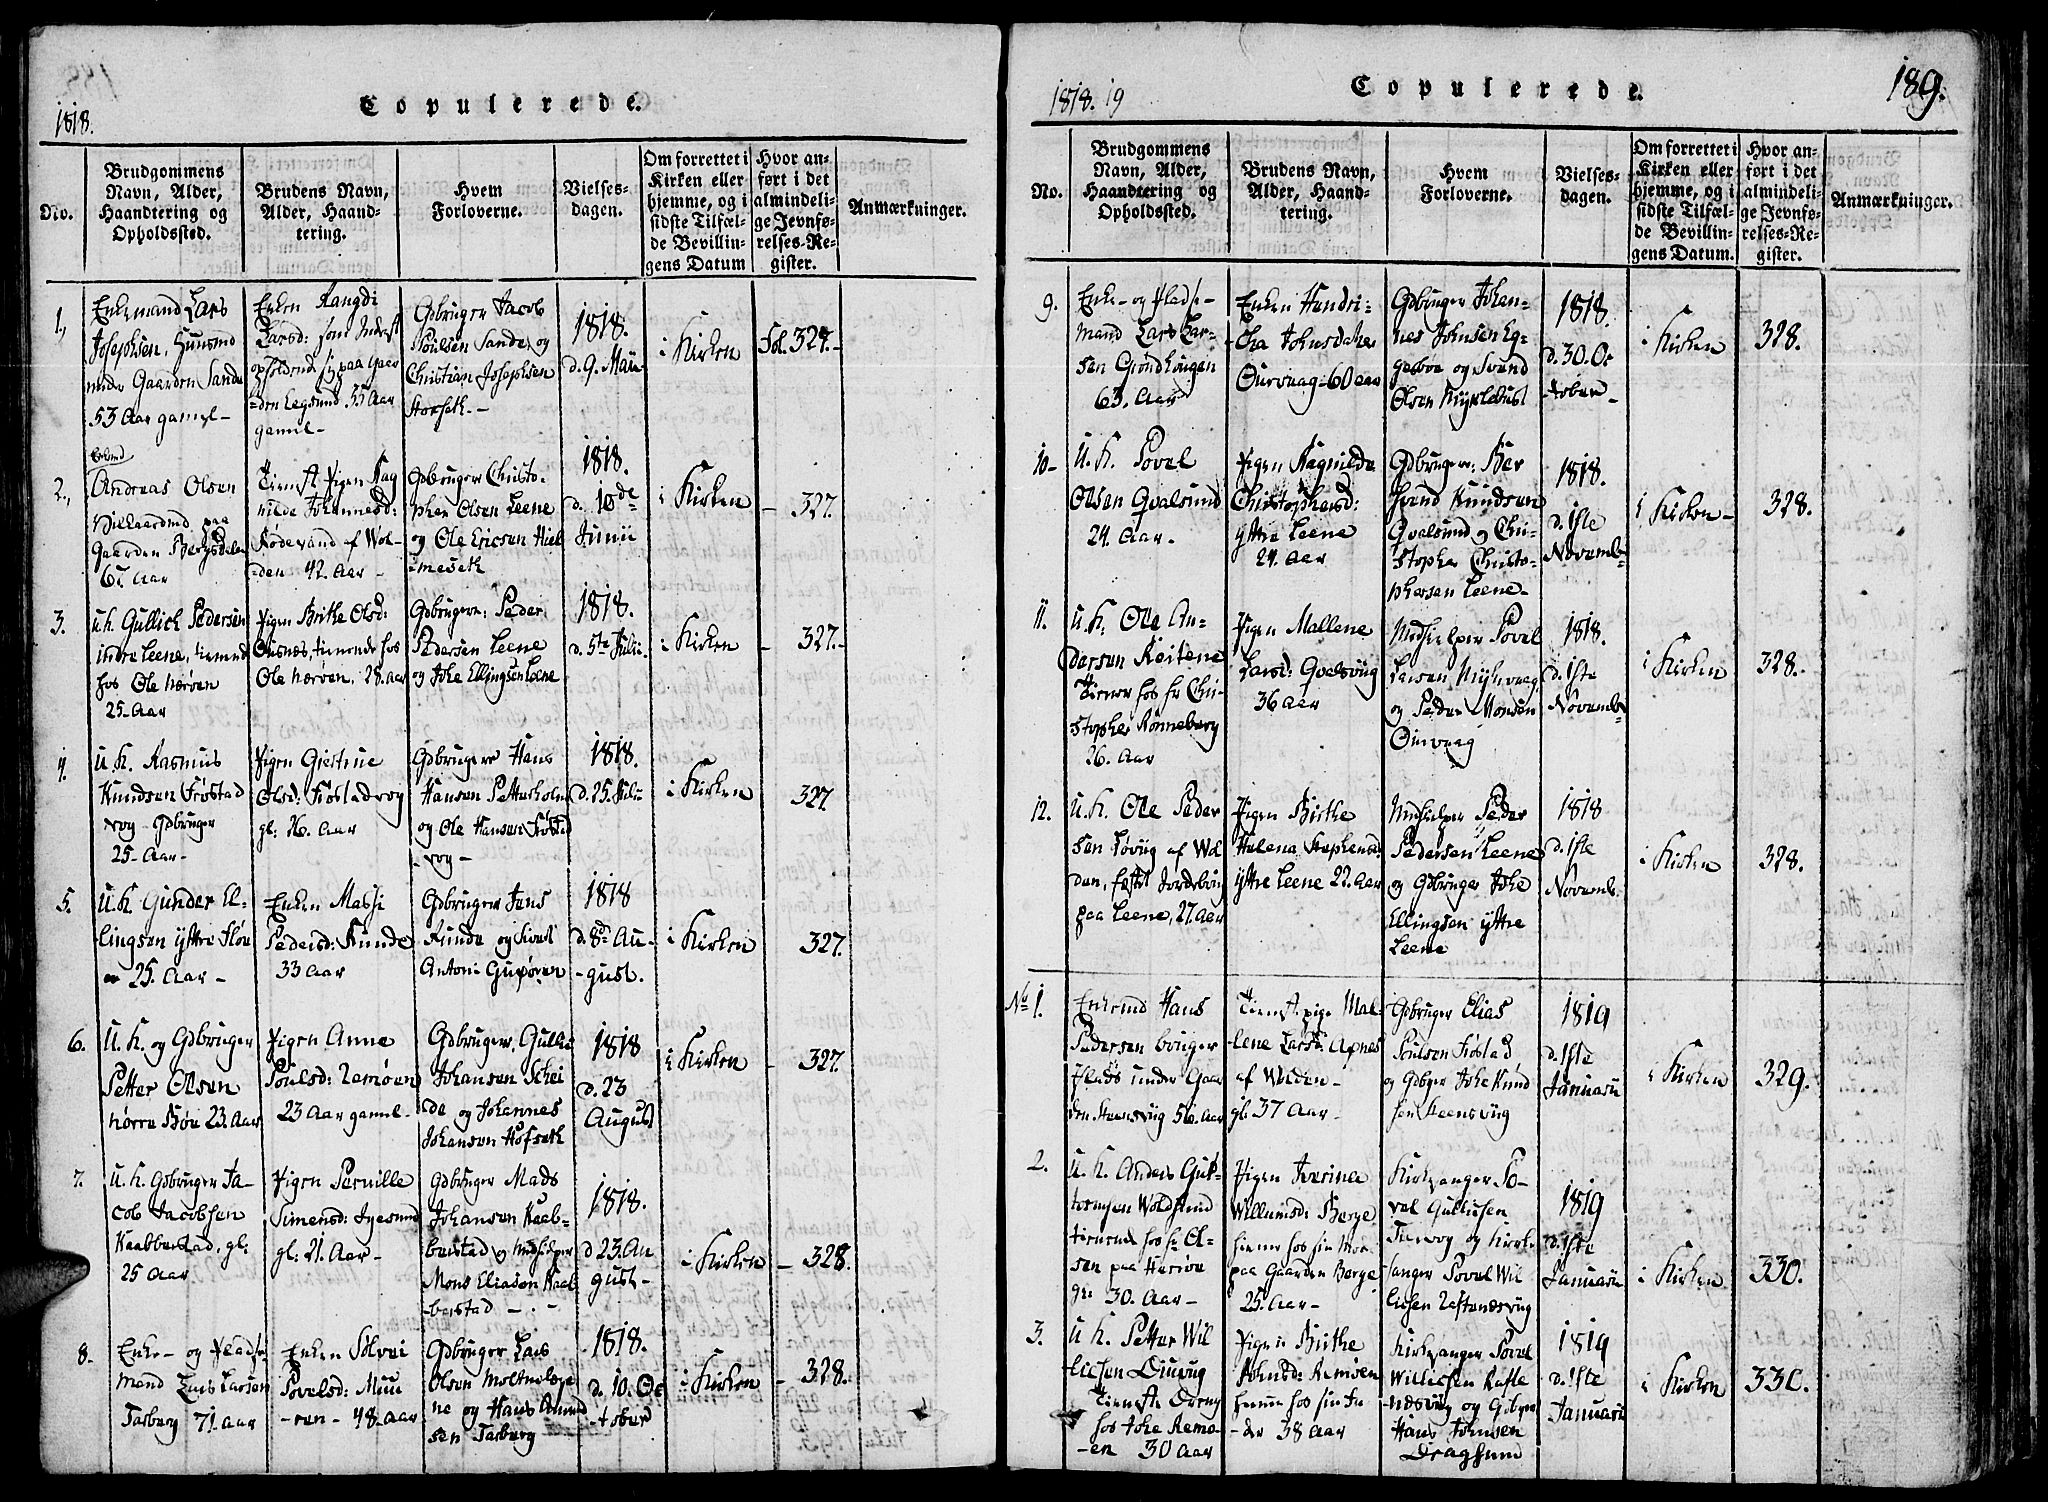 1818.
Copulerede.
No.
Brudgommens
Navn, Alder,
Haandtering og
Opholdssted.
Brudens Navn,
Alder, Haand-
tering.
Hvem
Forloverne.
Vielses-
dagen.
Om forrettet i
Kirken eller
hjemme, og i
sidste Tilfæl-
de Bevillin-
gens Datum
Hvor an-
ført i det
almindeli-
ge Jevnfø-
relses-Re-
gister.
Anmærkninger.
1.,
Enkemand Lars
Josephsen, Huusmd
under Gaarden Sande
53 Aar gaml-
Enken
Larsd: som Inderst
opholdende sig paa Gaar
den Eegsund 55 Aar
gaml-
Gdbruger Jacob
Poulsen Sande og
Christian Josephsen
Storseth.-
1818.
d. 9. Maii
i Kirken
Fol. 327.-
2.,
Enkemd
Andreas Olsen
paa
Gaarden
67. Aar
Tienst Pigen Rag
nilde Johannesd:
af Vol-
den 42. Aar-
Gdbruger Christo-
pher Olsen Leene
og Ole Ericsen Hiel
meseth
1818.
d. 10de
Junii
i Kirken
327.
3.
u.k. Gullick Pedersen
indre Leene, tienende
hos Ole Nerøen
25-Aar
Pigen Birthe Olsd:
tienende hos
Ole Nerøen, 28. Aar
Gdbrugere: Peder
Pedersen Leene
og Johe Ellingsen Leene
1818.
d. 5te Julii
i Kirken
327.-
4.
u.k. Rasmus
Knudsen Frøstad
vog Gdbruger
25-Aar-
Pigen Giertrue
Olsd: Frøstadvog
gl: 26. Aar
Gdbrugere Hans
Hansen Petterholm
og Ole Hansen Frøstad
-vog-
1818.
d. 25. Julii
i Kirken
327.
5.
u.k. Gunder El-
lingsen yttre Fløe
25. Aar-
Enken Massi
Pedersd: Runde
33 Aar
Gdbrugere Jens
Runde og Sivert
Antoni
1818
d. 8de Au-
-gust.
i Kirken
327.
6.
u.k. og Gdbruger
Petter Olsen
nørre Bøe 23. Aar
Pigen Anne
Poulsd: Remøen
23 Aar gaml-
Gdbrugere, Gullic
Johansen Schei
de og Johannes
Johansen Hofseth
1818
d. 23
August
i Kirken
327.
7.
u.k. Gdbruger Ja-
cob Jacobsen
Haabbestad, gl:
25 Aar
Pigen Pernille
Simensd: Igesund
gl: 21. Aar-
Gdbruger Mads
Johansen Haab-
berstad og Medhielper
Mons Eliasen Haab
berstad-
1818.
d. 23. Au
gust-
i Kirken
328.
8.
Enke- og Pladse-
mand Lars Larsen
Tarberg 71. aar
Enken Sølvei
Povelsd: Mun
-ren- 48. aar
Gdbruger Lars
Olsen
ne og Hans Amund
sen Tarberg
1818.
d. 10. Oc
-tober
i Kirken
328.
1818. 19
Copulerede.
189.
No.
Brudgommens
Navn, Alder,
Haandtering og
Opholdssted.
Brudens Navn,
Alder, Haand-
tering.
Hvem
Forloverne.
Vielses-
dagen.
Om forrettet i
Kirken eller
hjemme, og i
sidste Tilfæl-
de Bevillin-
gens Datum.
Hvor an-
ført i det
almindeli-
ge Jevnfø-
relses-Re-
gister.
Anmærkninger.
9.
Enke- og Pladse-
mand Lars Lar-
sen Grønhougen
63. Aar
Enken Hendri-
cha Johnsdatter
Ourvaag- 60 aar
Gdbruger Johan-
nes Johnsen Eg-
gesbøe og Svend
Olsen Myrlebust
1818.
d. 30. Oc
-tober
i Kirken
328.
10-
u.k. Povel
Olsen Qvalsund
24. Aar.
Pigen Ragnilde
Christophersd:
yttre Leene
24. aar
Gdbrugere:
Svend Knudsen
Qvalsund og Chri-
stopher Christo-
phersen Leene-
1818.
d. 1ste
Novemb-
i Kirken-
328.
11.
u.k. Ole An-
dersen Reitene
Tiener hos hr Chri-
stopher Rønneberg
26. Aar
Pigen Mallene
Larsd: Qvalsviig
36 aar
Medhielper Povel
Larsen
og Peder Monsen
Ourvaag
1818.
d. 1ste
Novemb-
i Kirken
328.
12.
u.k. Ole Peder
sen Løviig af Vol
den,
paa Leene, 27. Aar
Pigen Birthe
Helena Stephensd:
yttre Leene 22. Aar
Medhielper Peder
Pedersen Leene
og Gdbruger Johe
Ellingsen yttre
Leene
1818
d. 1ste
Novemb.
i Kirken
328.
No 1.
Enkemd Hans
Pedersen bruger
Plads under Gaar
den Steensviig 56. Aar
Tienst pige Mal-
lene Larsd: Apnes
af Volden-
gl: 37 Aar-
Gdbruger Elias
Poulsen Frøstad
og Gdbger Johe Knud
sen Steensviig
1819
d. 1ste
Januarii
i Kirken
329.
2.
u.k. Anders Gut-
tormsen Voldsund
tienende hos hr Ol-
sen paa Herøe
gl: 30. Aar-
Pigen Iverine
Willumsd: Berge
hiemme hos sin Moer
paa Gaarden Berge
25. Aar-
Kirkesanger Po-
vel
og Kirke
sanger Povel Wil
licsen Raftenæsviig
1819
d. 1ste
Januarii
i Kirken
330.
3.
u.k. Petter Wil
licsen
Tienst Dreng
hos Johe Remø-
-en 30 Aar
Pigen Birthe
Johnsd: Remøen
hiemme hos sin Fa
-der 38 Aar
Kirkesanger Povel
Willicsen Rafte
næsviig og Gdbger
Hans Johnsen
Dragsund
1819
d. 1ste
Januarii
i Kirken
330.